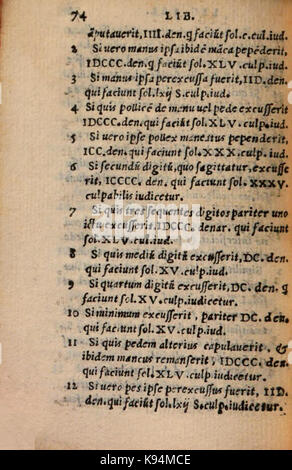 74 LIB.
āputaverit, IIII.den.q̄ faciūt sol.c.cul.iud.
2 Si uero manus ipsa ibidē māca pepēderit,
IDCCC.den.q̄ faciūt sol.XLV.culp.iud.
3 Si manus ipsa perexcussa fuerit, IID.den.
qui faciunt sol.lxij S.culp.iud.
4 Si quis pollicē de manu uel pede excusserit
IDCCC.den. qui faciūt sol.XLV.culp.iud.
5 Si uero ipse pollex mancstus pependerit,
ICC.den.qui faciunt sol.XXX.culp.iud.
6 Si secundū digitū, quo sagittatur, excusse
rit, ICCCC. den. qui faciunt sol.XXXV.
culpabilis iudicetur.
7 Si quis tres sequentes digitos pariter uno
ictu excusserit, IDCCC. denar. qui faciunt
sol.XLV.cul.iud.
8 Si quis mediū digitū excusserit, DC. den.
qui faciūt sol.XV.culp.iud.
9 Si quartum digitū excusserit, DC den. q̄
faciunt sol.XV.culp.iudicetur.
10 Si minimum excusserit, pariter DC. den.
qui faciunt sol.XV.culp.iud.
11 Si quis pedem alterius capulauerit, &
ibidem mancus remanserit, IDCCC. den.
qui faciunt sol.XLV.culp.iudicetur.
12 Si uero pes ipse perexcussus fuerit, IID.
den.qui faciunt sol.lxij S.culp.iudicetur.
alamy
K94MCE